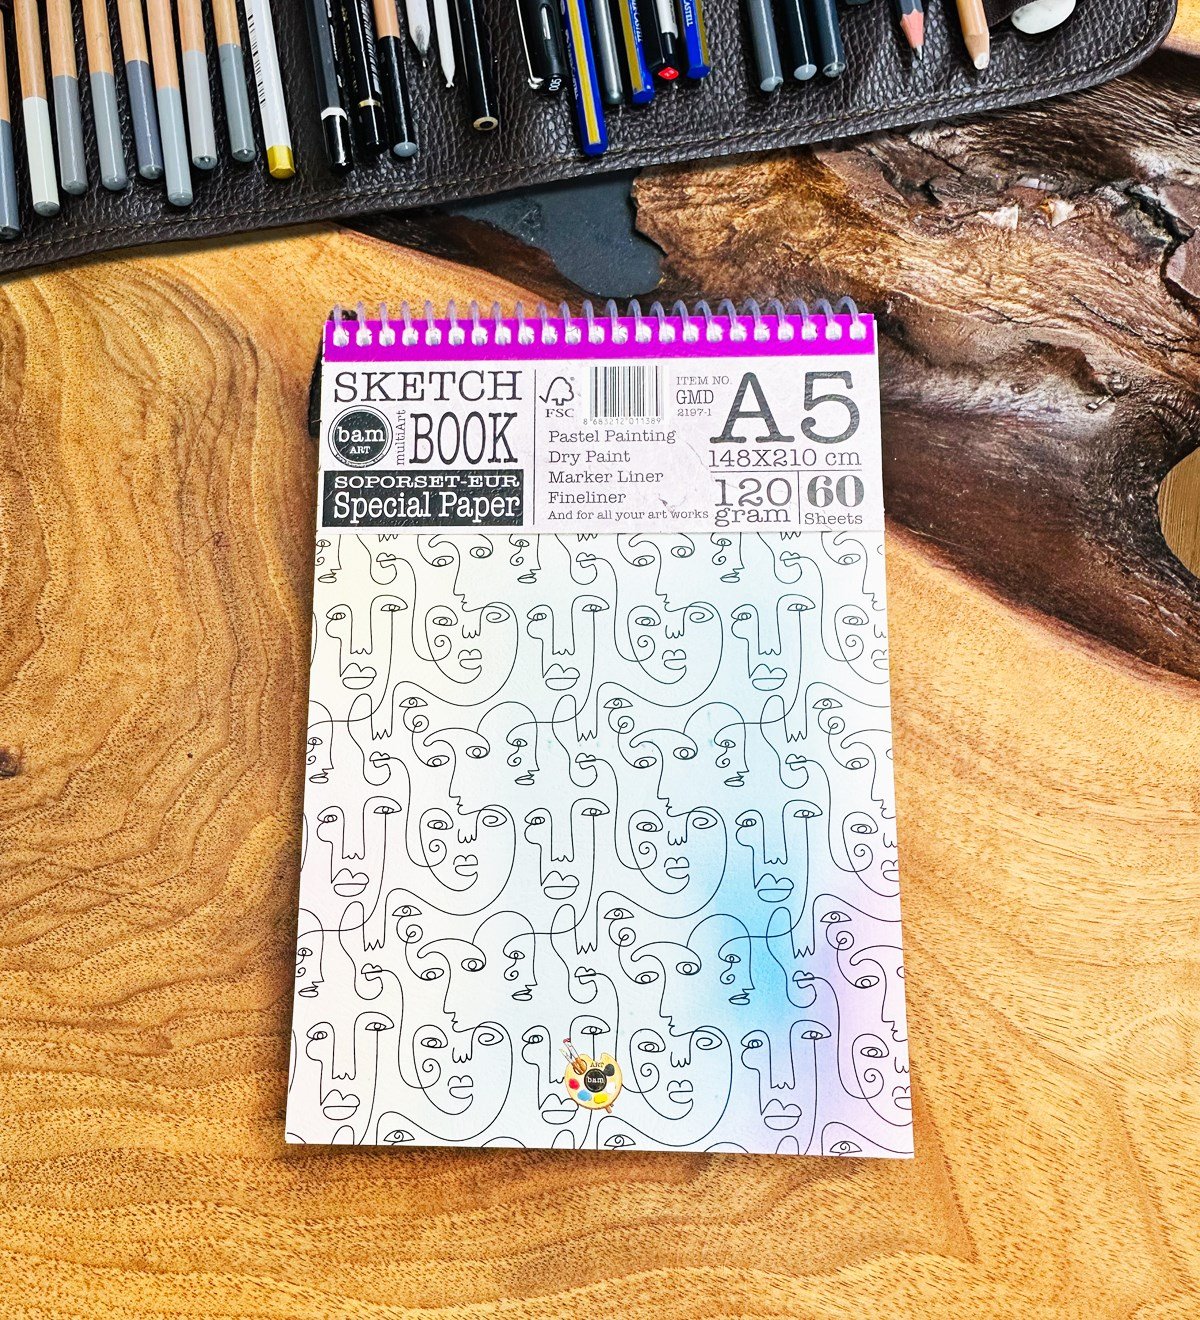 SKETCH
bam
ART
multiArt
BOOK
SOPORSET-EUR
Special Paper
FSC
8 683212 011389
Pastel Painting
Dry Paint
Marker Liner
Fineliner
And for all your art works
ITEM NO.
GMD
2197-1
A5
148X210 cm
120
gram
60
Sheets
ART
bam
CASTELL
005